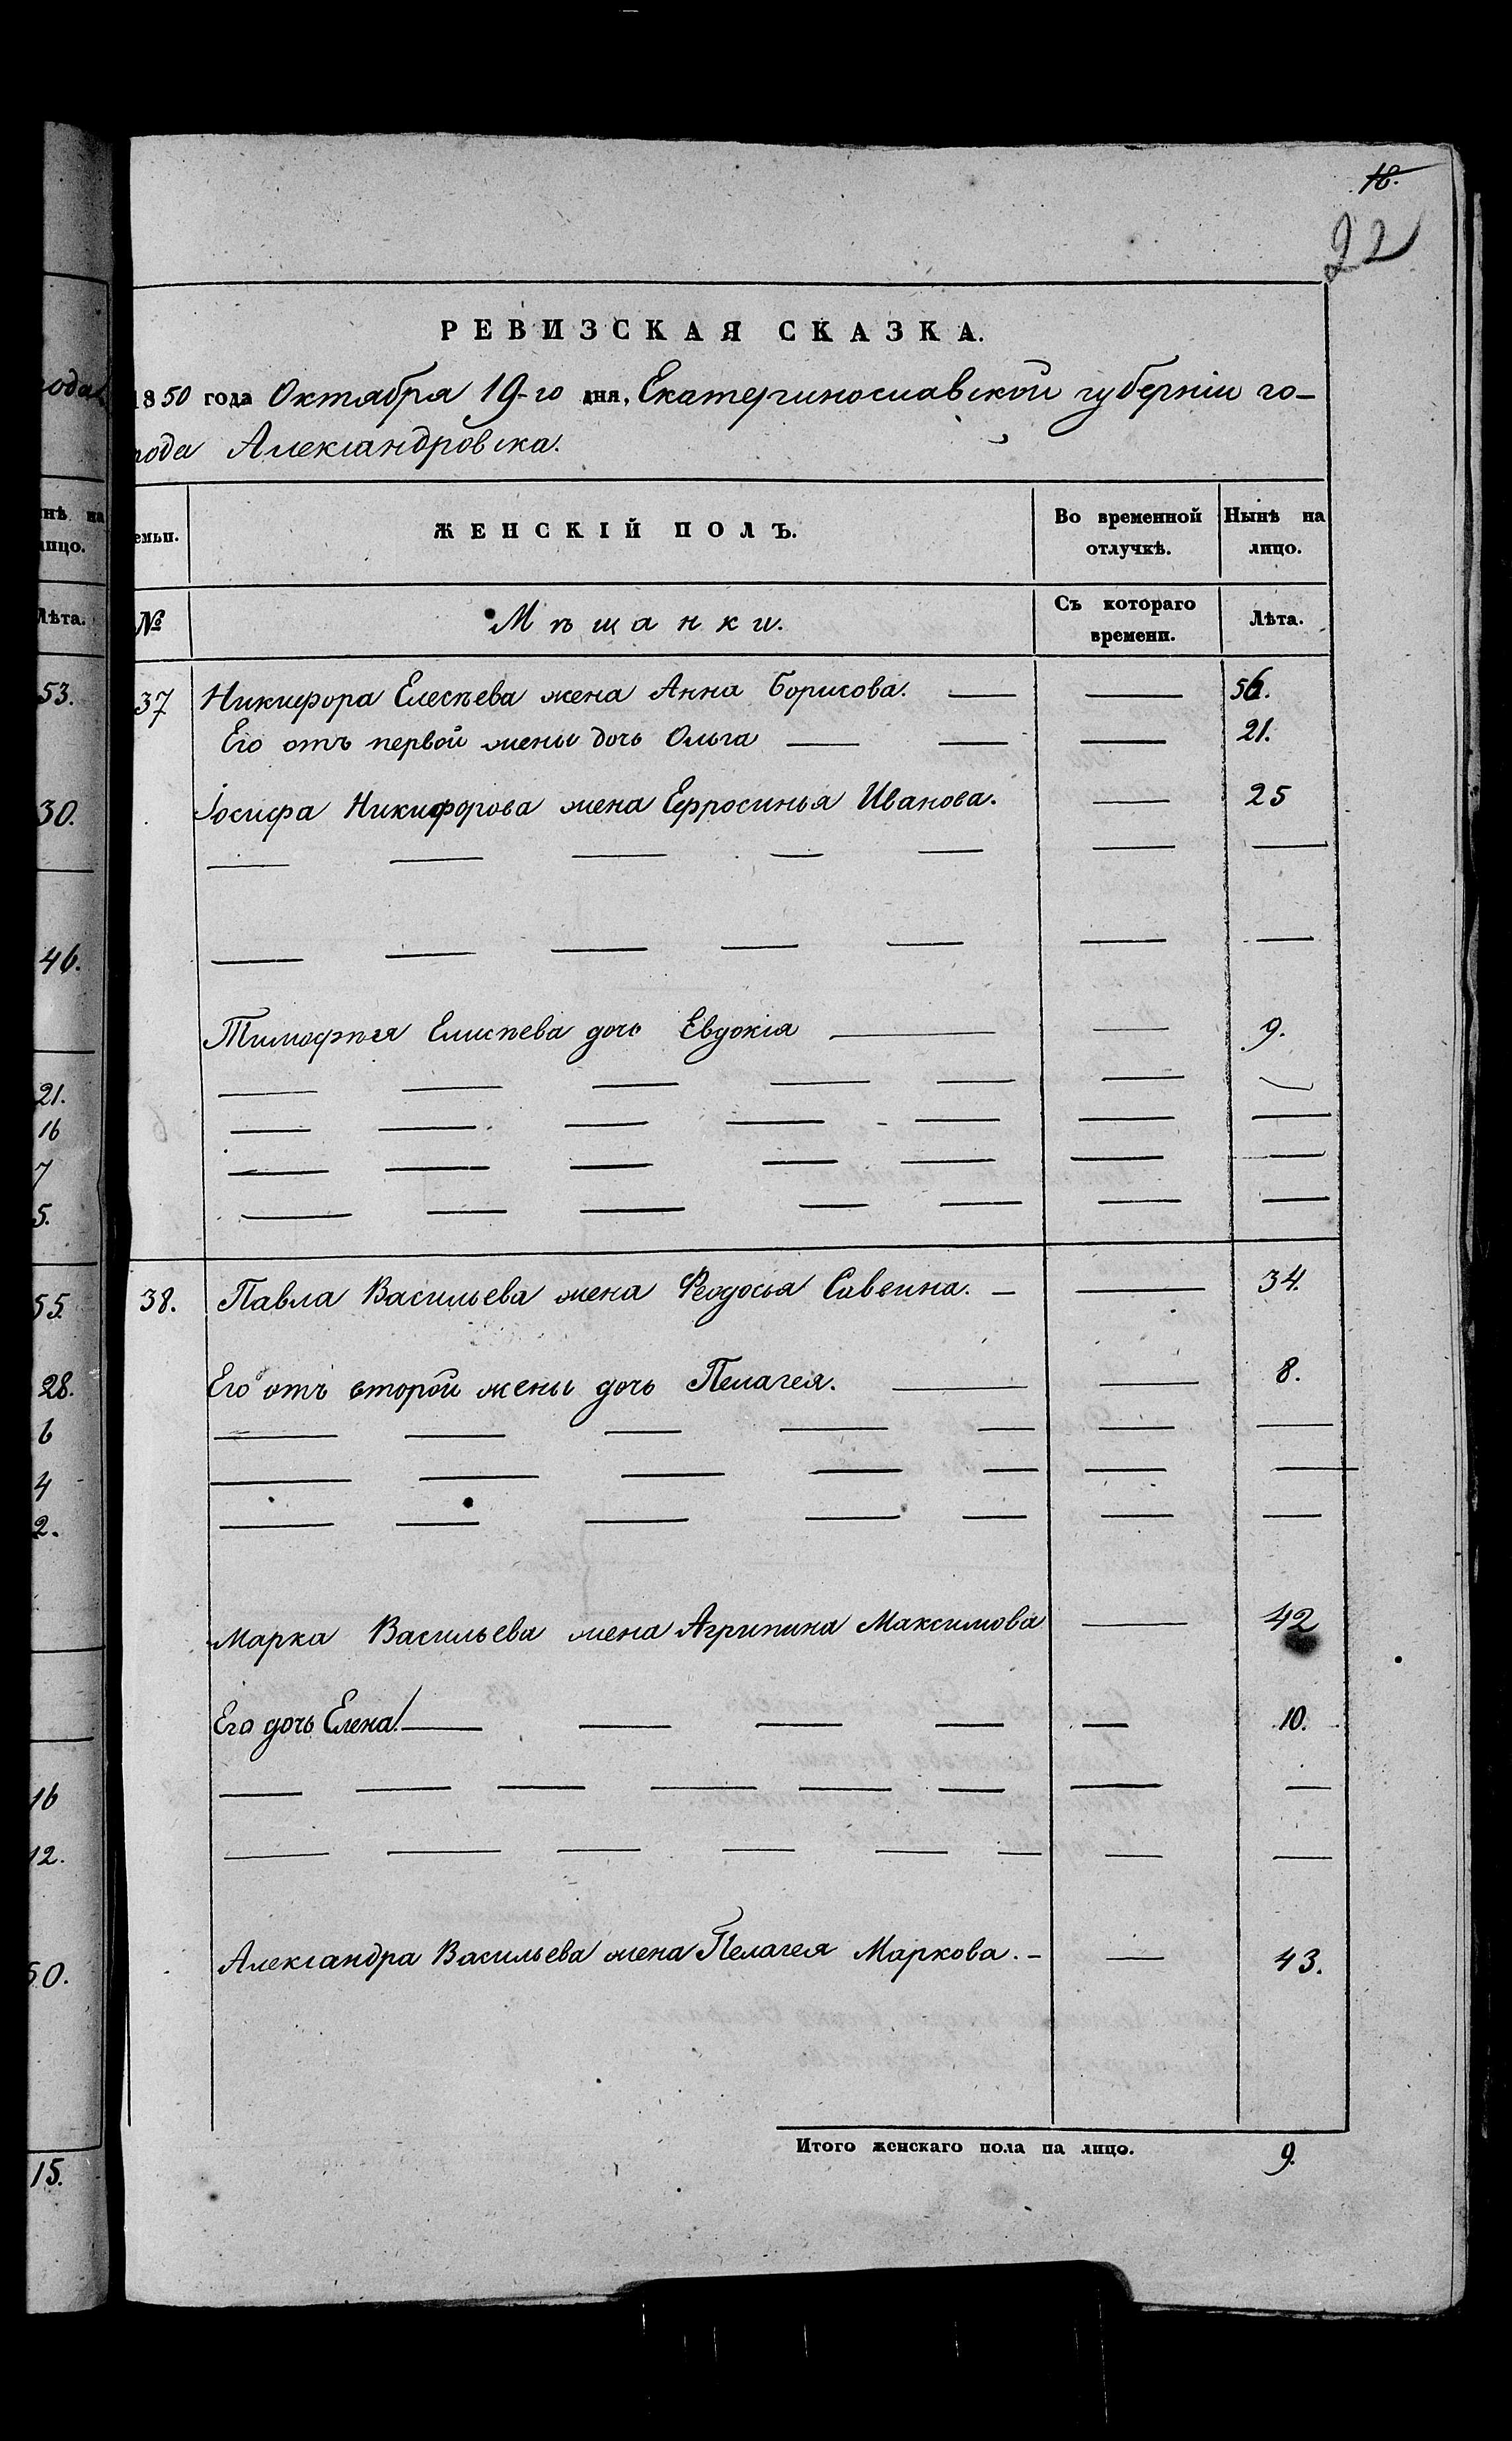 18.
22
РЕВИЗСКАЯ СКАЗКА.
1850 года Октября 19-го дня, Екатеринославской губернiи го-
рода Александровска.
емьи. ЖЕНСКІЙ ПОЛЪ. Во временной отлучкѣ. Нынѣ на лицо.
№ Мѣщанки. Съ котораго времени. Лѣта.
37 Никифора Елесѣева жена Анна Борисова. 56.
Его отъ первой жены дочь Ольга 21.
Іосифа Никифорова жена Ефросинья Иванова. 25
Тимофѣя Елисѣева дочь Евдокiя 9.
38. Павла Васильева жена Феодосья Савеина. 34.
Его отъ второй жены дочь Пелагея. 8.
Марка Васильева жена Агрипина Максимова 42
Его дочь Елена 10.
Александра Васильева жена Пелагея Маркова. 43.
Итого женскаго пола на лицо. 9.
нѣ на
лицо.
Лѣта.
53.
30.
46.
21.
16
7
5.
55.
28.
6
4
2.
16
12.
50.
15.